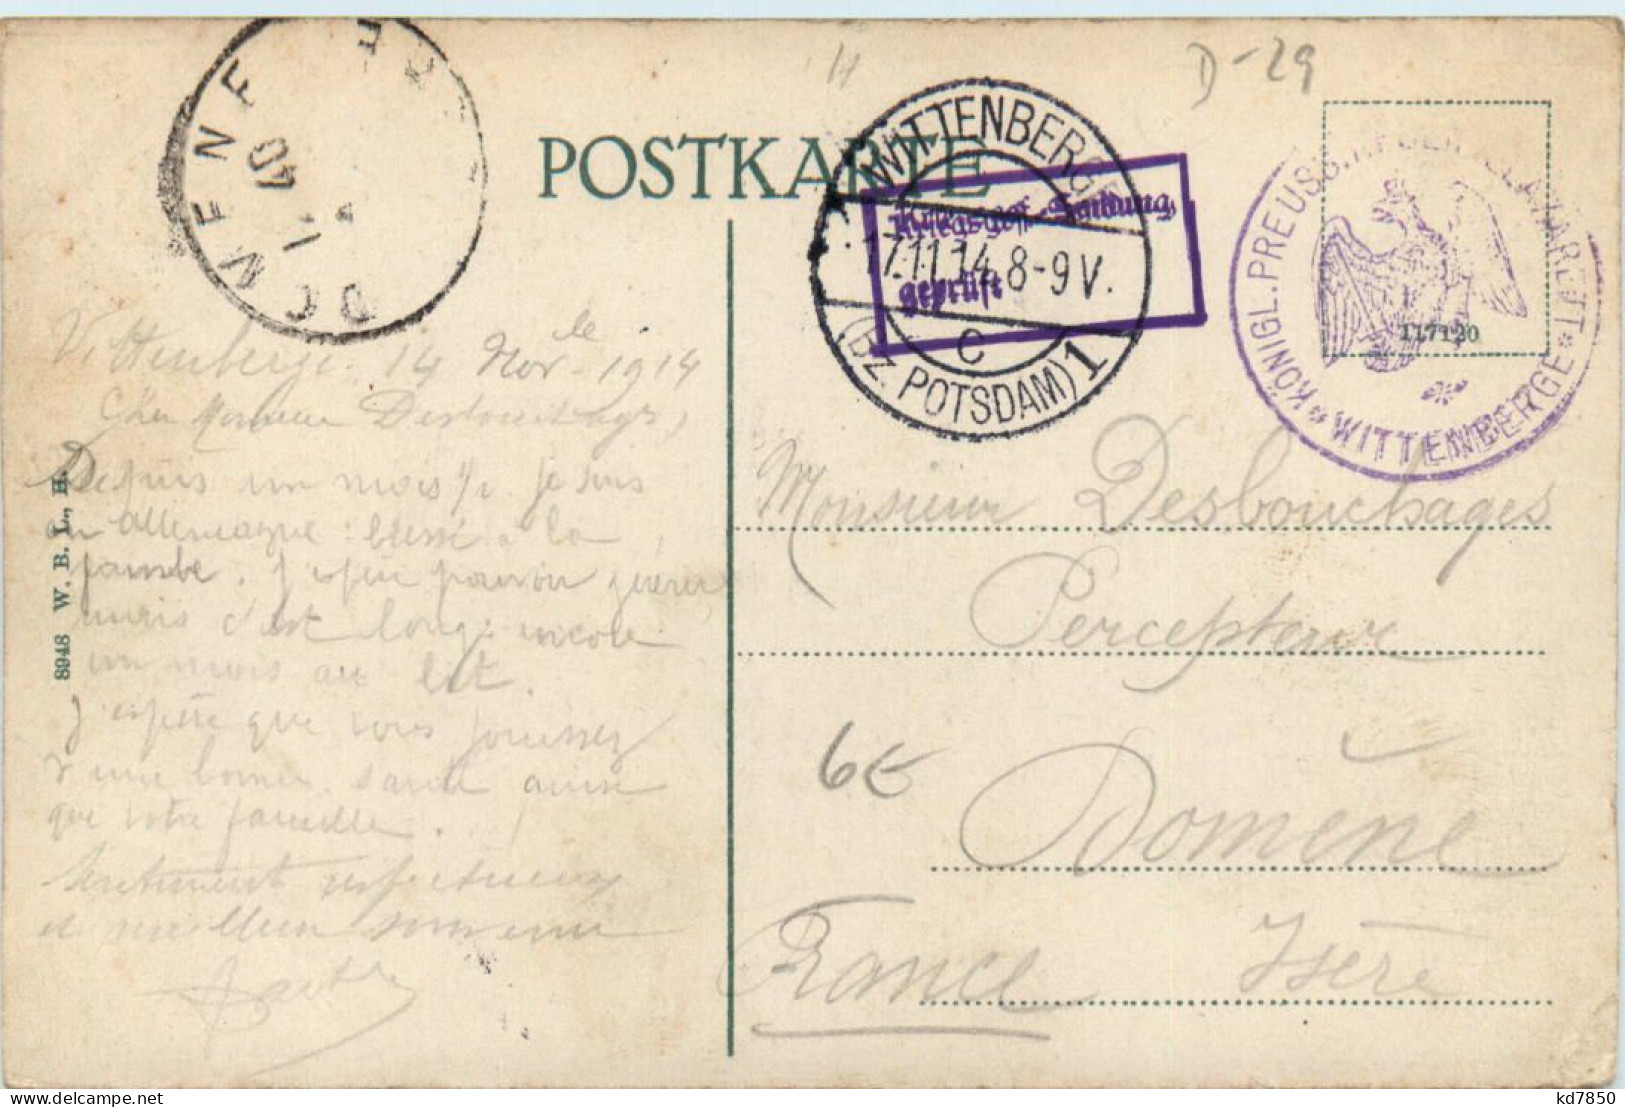 D-29
DOMENE
ISERE
40
POSTKARTE
WITTENBERGE
17.11.14. 8-9 V.
c
(BZ. POTSDAM) 1
Kriegsgef.-Sendung
geprüft
KÖNIGL. PREUSS. LAZARETT
* WITTENBERGE *
117120
8948 W. B. L., H.
Wittenberge. 14 Nov.bre 1914
Cher Monsieur Desbouchages,
Depuis un mois ½ je suis
en Allemagne : blessé à la
jambe. J'espère pouvoir guérir,
mais c'est long: encore
un mois au lit.
J'espère que vous jouissez
d'une bonne santé ainsi
que votre famille.
Sentiments respectueux
et meilleur souvenir
Monsieur Desbouchages
Percepteur
6€
Domène
Isère
France
delcampe.net
kd7850